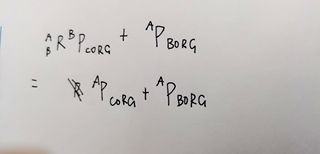 ᴬ_B R ᴮP_CORG + ᴬP_BORG
= ᴬP_CORG + ᴬP_BORG